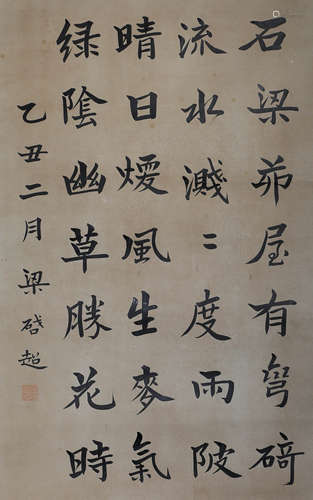 石梁茆屋有弯碕
流水濺〻度兩陂
晴日煖風生麥氣
绿陰幽草勝花時
乙丑二月梁啓超